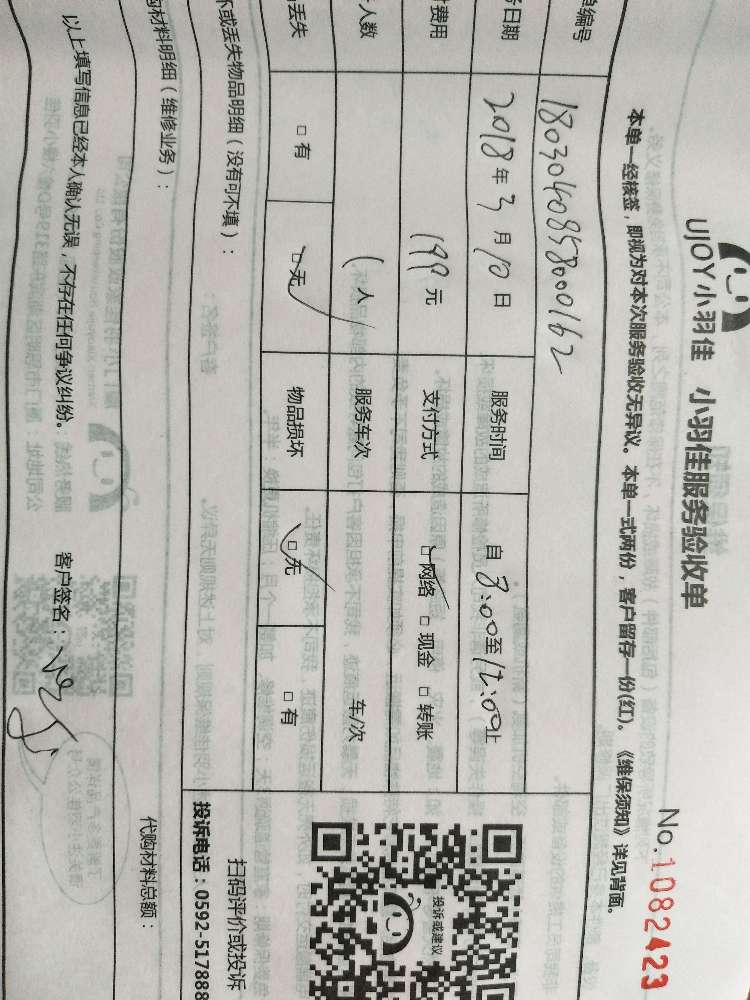 UJOY小羽佳 小羽佳服务验收单
No.1082423
本单一经核签，即视为对本次服务验收无异议。本单一式两份，客户留存一份(红)。《维保须知》详见背面。
单编号 1803040858000162
日期 2018年3月10日 服务时间 自8:00至12:00止
费用 199元 支付方式 □网络 □现金 □转账
人数 1人 服务车次 车/次
丢失 □有 □无 物品损坏 □无 □有
坏或丢失物品明细（没有可不填）：
购材料明细（维修业务）：
代购材料总额：
投诉或建议
扫码评价或投诉
投诉电话：0592-517888
以上填写信息已经本人确认无误，不存在任何争议纠纷。 客户签名：